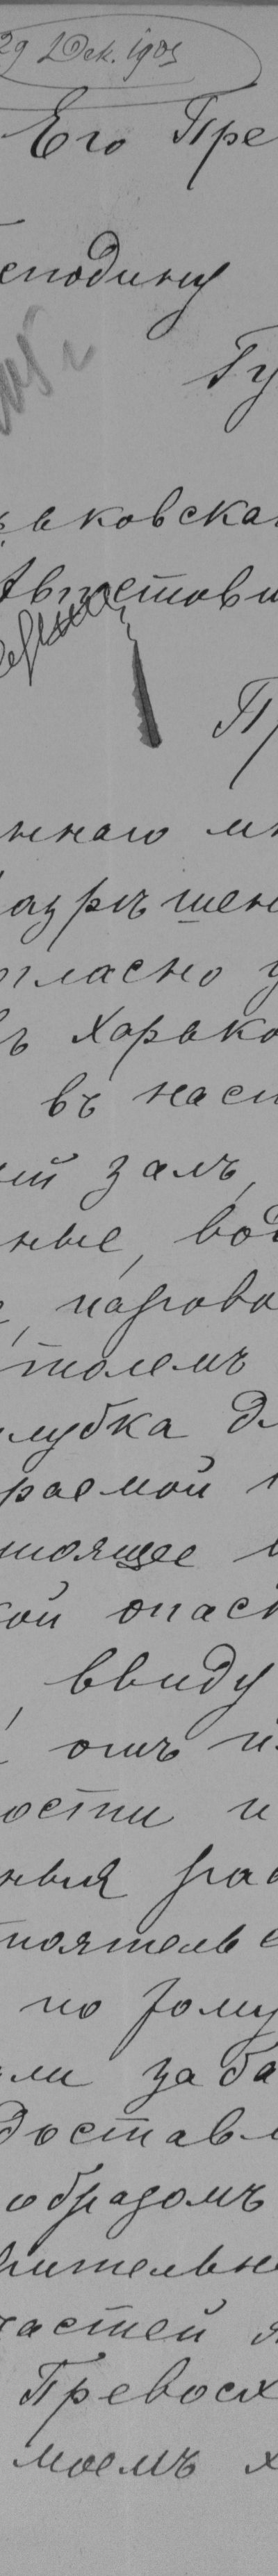 29 Дек. 1905
Его Пре
сподину
Гу
ьковска
Августови
П
ннаго мн
азрѣшен
огласно у
ъ Харько
въ нас
ій залъ,
ные, во
, парово
толемъ
лубка д
раемой
тоящее
кой опасн
, ввиду
отъ и
ости и
ныя ра
тоятельс
по Тому
ли заба
доставл
образомъ
ительн
частей
Превосх
моемъ х